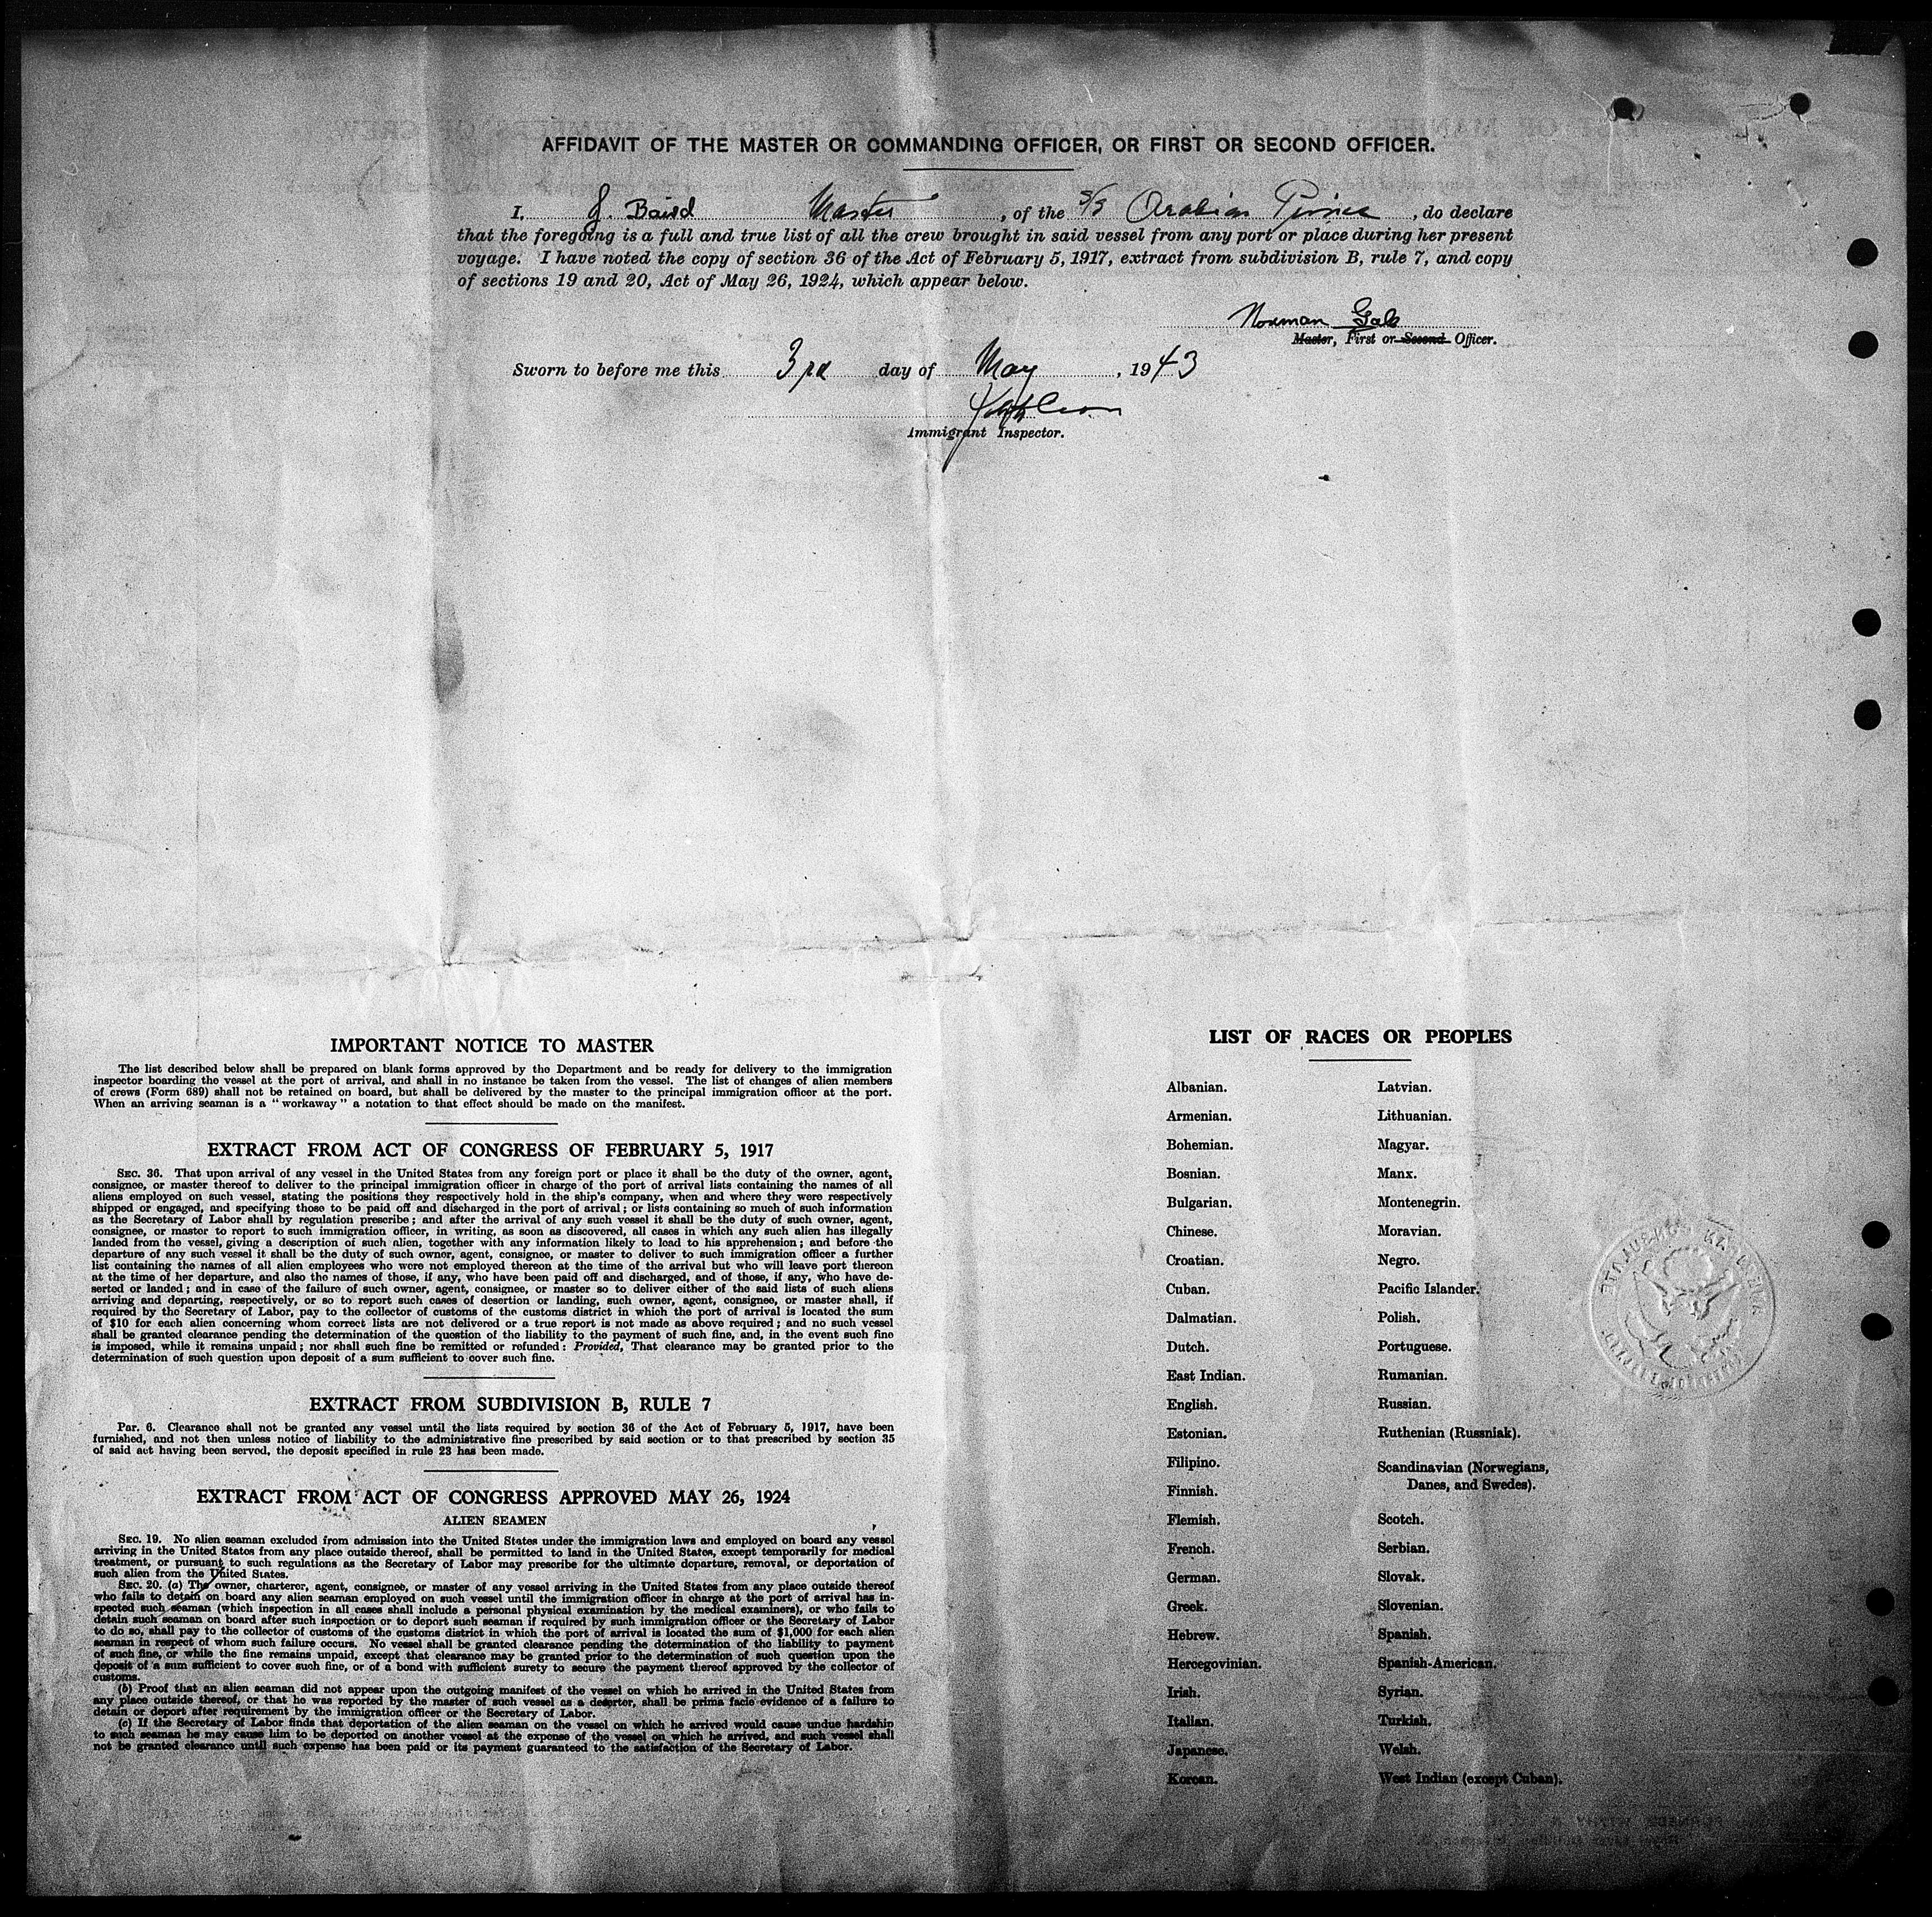 AFFIDAVIT OF THE MASTER OR COMMANDING OFFICER, OR FIRST OR SECOND OFFICER.
I, J. Baird Master, of the S/S Arabian Prince, do declare
that the foregoing is a full and true list of all the crew brought in said vessel from any port or place during her present
voyage. I have noted the copy of section 36 of the Act of February 5, 1917, extract from subdivision B, rule 7, and copy
of sections 19 and 20, Act of May 26, 1924, which appear below.
Norman Gale
Master, First or Second Officer.
Sworn to before me this 3rd day of May, 1943
Immigrant Inspector.
IMPORTANT NOTICE TO MASTER
The list described below shall be prepared on blank forms approved by the Department and be ready for delivery to the immigration
inspector boarding the vessel at the port of arrival, and shall in no instance be taken from the vessel. The list of changes of alien members
of crews (Form 689) shall not be retained on board, but shall be delivered by the master to the principal immigration officer at the port.
When an arriving seaman is a "workaway" a notation to that effect should be made on the manifest.
EXTRACT FROM ACT OF CONGRESS OF FEBRUARY 5, 1917
SEC. 36. That upon arrival of any vessel in the United States from any foreign port or place it shall be the duty of the owner, agent,
consignee, or master thereof to deliver to the principal immigration officer in charge of the port of arrival lists containing the names of all
aliens employed on such vessel, stating the positions they respectively hold in the ship's company, when and where they were respectively
shipped or engaged, and specifying those to be paid off and discharged in the port of arrival; or lists containing so much of such information
as the Secretary of Labor shall by regulation prescribe; and after the arrival of any such vessel it shall be the duty of such owner, agent,
consignee, or master to report to such immigration officer, in writing, as soon as discovered, all cases in which any such alien has illegally
landed from the vessel, giving a description of such alien, together with any information likely to lead to his apprehension; and before the
departure of any such vessel it shall be the duty of such owner, agent, consignee, or master to deliver to such immigration officer a further
list containing the names of all alien employees who were not employed thereon at the time of the arrival but who will leave port thereon
at the time of her departure, and also the names of those, if any, who have been paid off and discharged, and of those, if any, who have de-
serted or landed; and in case of the failure of such owner, agent, consignee, or master so to deliver either of the said lists of such aliens
arriving and departing, respectively, or so to report such cases of desertion or landing, such owner, agent, consignee, or master shall, if
required by the Secretary of Labor, pay to the collector of customs of the customs district in which the port of arrival is located the sum
of $10 for each alien concerning whom correct lists are not delivered or a true report is not made as above required; and no such vessel
shall be granted clearance pending the determination of the question of the liability to the payment of such fine, and, in the event such fine
is imposed, while it remains unpaid; nor shall such fine be remitted or refunded: Provided, That clearance may be granted prior to the
determination of such question upon deposit of a sum sufficient to cover such fine.
EXTRACT FROM SUBDIVISION B, RULE 7
Par. 6. Clearance shall not be granted any vessel until the lists required by section 36 of the Act of February 5, 1917, have been
furnished, and not then unless notice of liability to the administrative fine prescribed by said section or to that prescribed by section 35
of said act having been served, the deposit specified in rule 23 has been made.
EXTRACT FROM ACT OF CONGRESS APPROVED MAY 26, 1924
ALIEN SEAMEN
SEC. 19. No alien seaman excluded from admission into the United States under the immigration laws and employed on board any vessel
arriving in the United States from any place outside thereof, shall be permitted to land in the United States, except temporarily for medical
treatment, or pursuant to such regulations as the Secretary of Labor may prescribe for the ultimate departure, removal, or deportation of
such alien from the United States.
SEC. 20. (a) The owner, charterer, agent, consignee, or master of any vessel arriving in the United States from any place outside thereof
who fails to detain on board any alien seaman employed on such vessel until the immigration officer in charge at the port of arrival has in-
spected such seaman (which inspection in all cases shall include a personal physical examination by the medical examiners), or who fails to
detain such seaman on board after such inspection or to deport such seaman if required by such immigration officer or the Secretary of Labor
to do so, shall pay to the collector of customs of the customs district in which the port of arrival is located the sum of $1,000 for each alien
seaman in respect of whom such failure occurs. No vessel shall be granted clearance pending the determination of the liability to payment
of such fine, or while the fine remains unpaid, except that clearance may be granted prior to the determination of such question upon the
deposit of a sum sufficient to cover such fine, or of a bond with sufficient surety to secure the payment thereof approved by the collector of
customs.
(b) Proof that an alien seaman did not appear upon the outgoing manifest of the vessel on which he arrived in the United States from
any place outside thereof, or that he was reported by the master of such vessel as a deserter, shall be prima facie evidence of a failure to
detain or deport after requirement by the immigration officer or the Secretary of Labor.
(c) If the Secretary of Labor finds that deportation of the alien seaman on the vessel on which he arrived would cause undue hardship
to such seaman he may cause him to be deported on another vessel at the expense of the vessel on which he arrived, and such vessel shall
not be granted clearance until such expense has been paid or its payment guaranteed to the satisfaction of the Secretary of Labor.
LIST OF RACES OR PEOPLES
Albanian.
Armenian.
Bohemian.
Bosnian.
Bulgarian.
Chinese.
Croatian.
Cuban.
Dalmatian.
Dutch.
East Indian.
English.
Estonian.
Filipino.
Finnish.
Flemish.
French.
German.
Greek.
Hebrew.
Hercegovinian.
Irish.
Italian.
Japanese.
Korean.
Latvian.
Lithuanian.
Magyar.
Manx.
Montenegrin.
Moravian.
Negro.
Pacific Islander.
Polish.
Portuguese.
Rumanian.
Russian.
Ruthenian (Russniak).
Scandinavian (Norwegians,
Danes, and Swedes).
Scotch.
Serbian.
Slovak.
Slovenian.
Spanish.
Spanish-American.
Syrian.
Turkish.
Welsh.
West Indian (except Cuban).